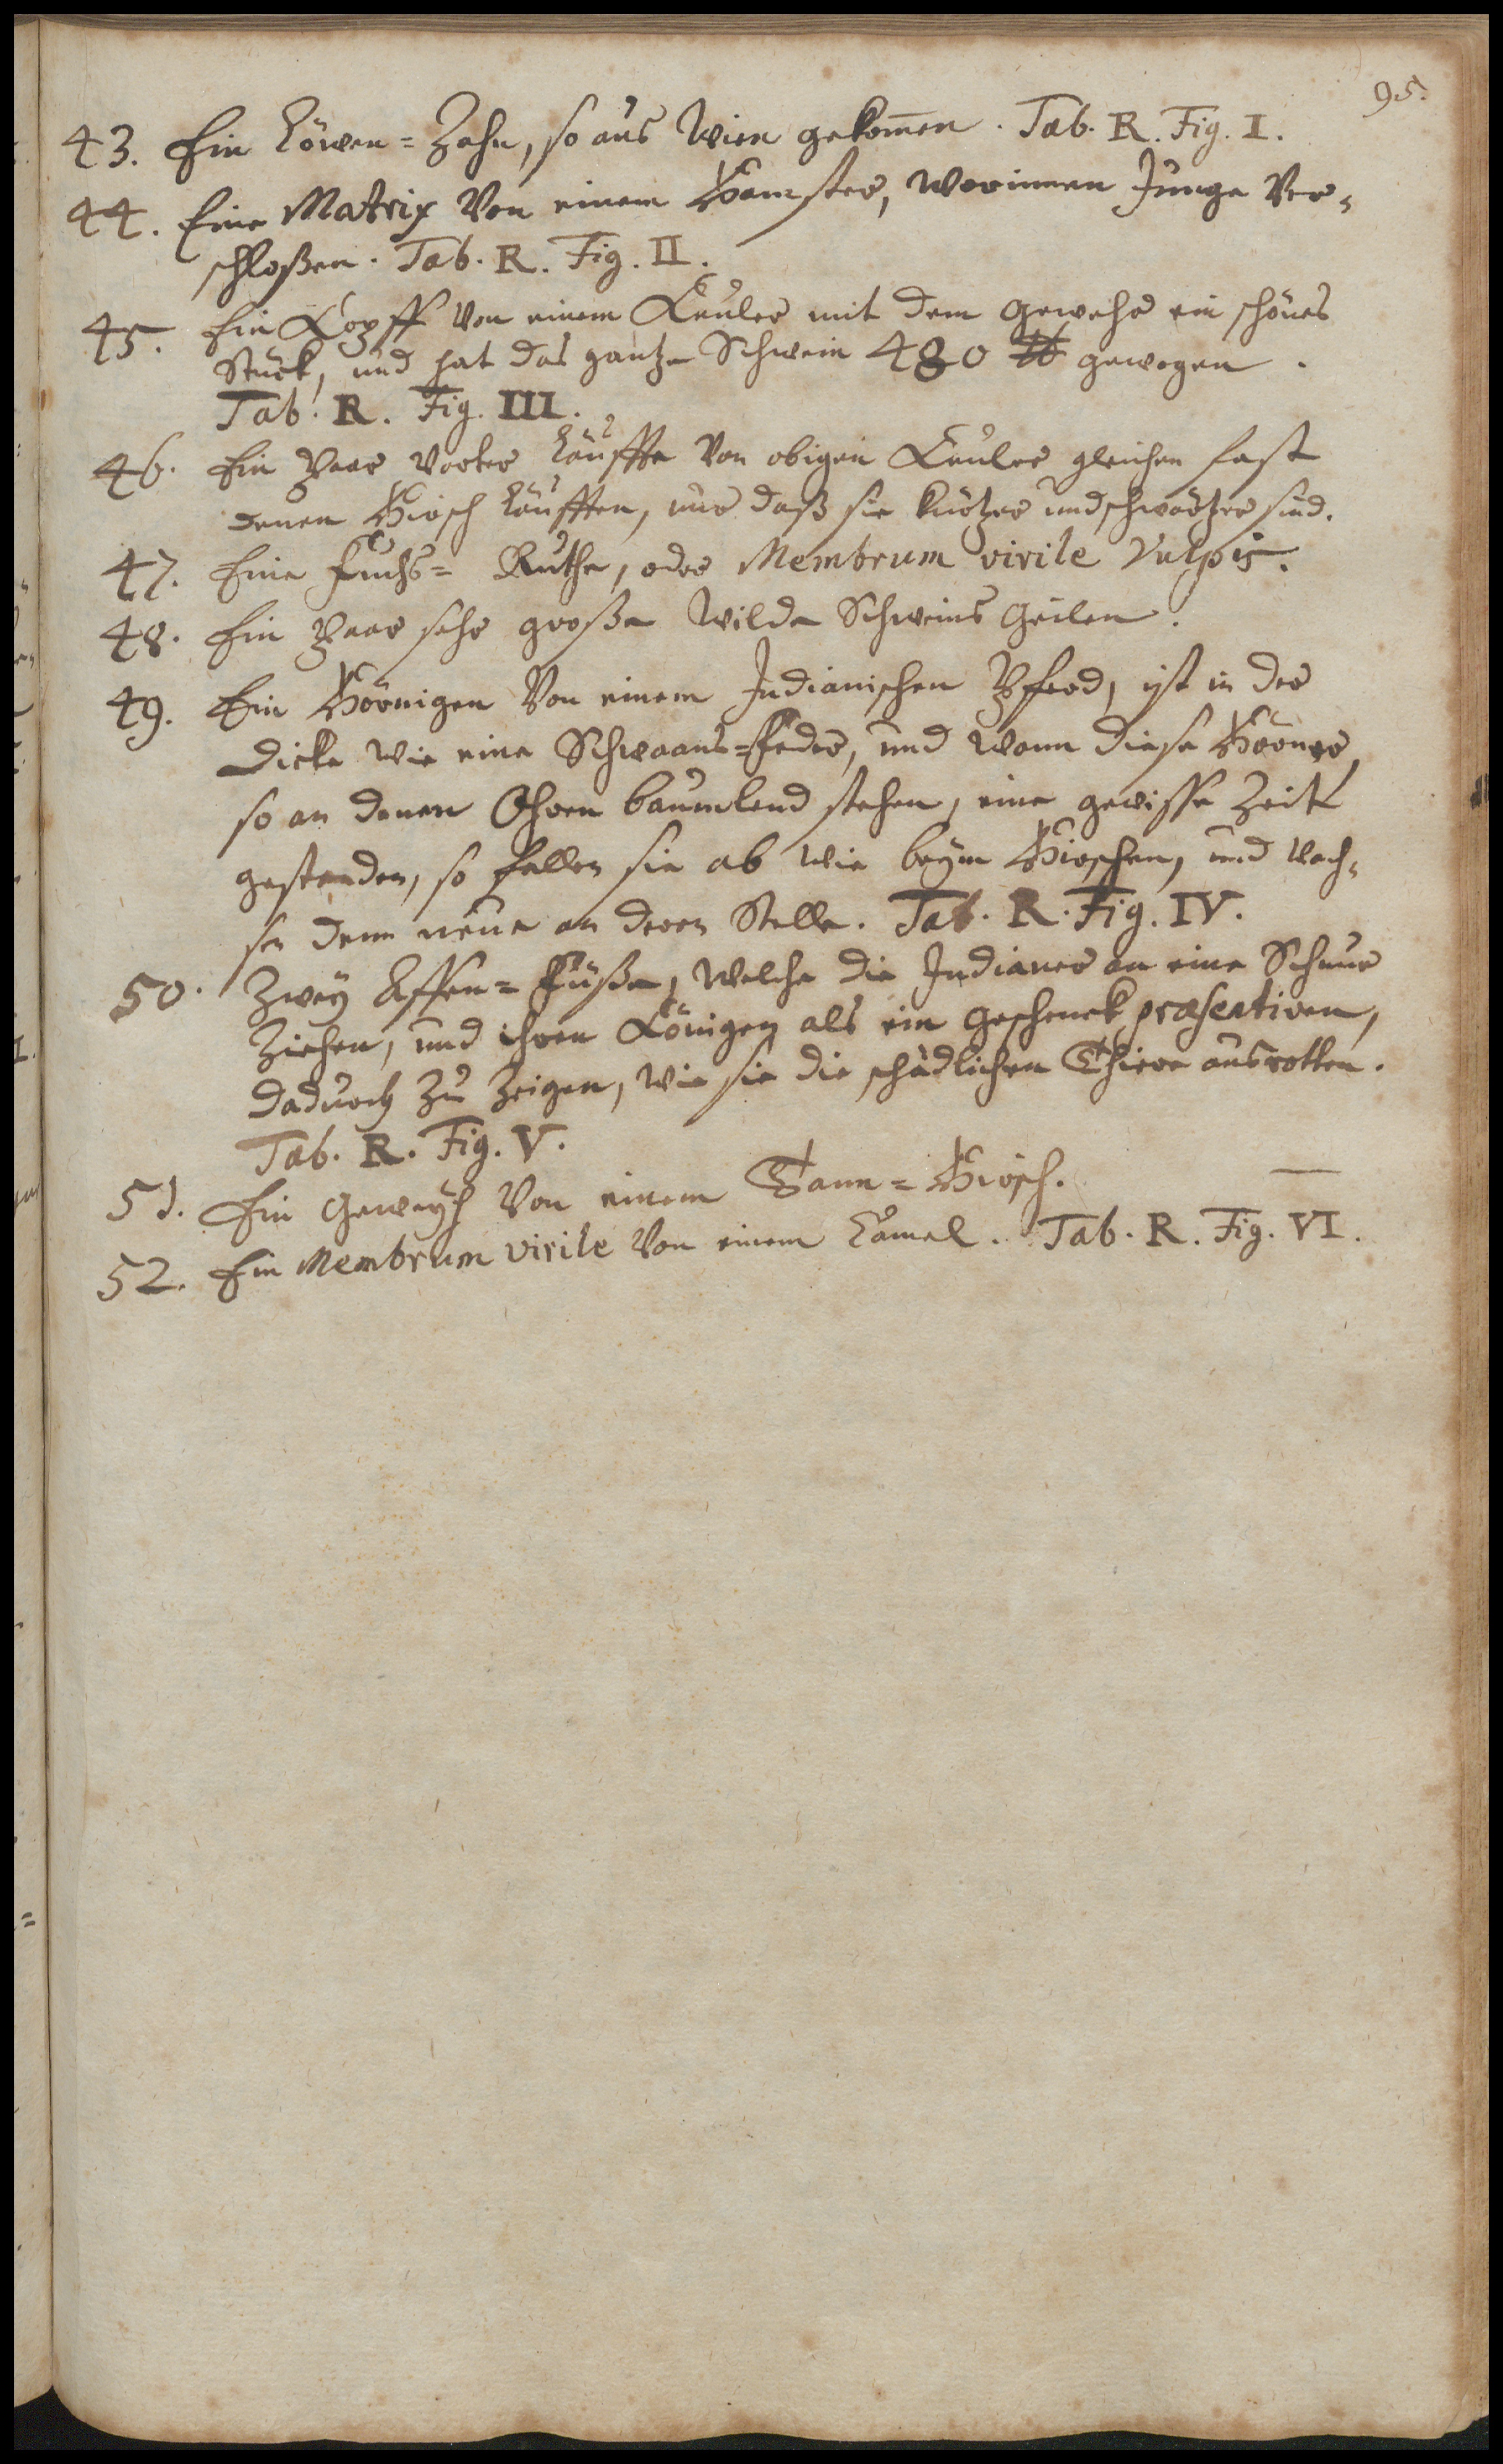 95.
43. Ein Löwen=Zahn, so aus Wien gekom̅en. Tab. R. Fig. I.
44. Eine Matrix von einem Hamster, worinnen Junge ver=
schloßen. Tab. R. Fig. II.
45. Ein Kopff von einem Keuler mit dem Gewehr ein schönes
Stück, und hat das gantze Schwein 480 ℔ gewogen.
Tab. R. Fig. III.
46. Ein Paar Vorter Läuffte von obigen Keuler gleichen fast
denen Hirsch Läufften, nur daß sie kürtzer und schwartzer sind.
47. Eine Fuchs=Ruthe, oder Membrum virile Vulpis.
48. Ein Paar sehr große wilde Schweins Geilen.
49. Ein Hörnigen von einem Indianischen Pferd, ist in der
Dicke wie eine Schwaans=Feder, und wann diese Hörner,
so an denen Ohren baumlend stehen, eine gewisse Zeit
gestanden, so fallen sie ab wie beym Hirschen, und wach=
sen denn neue an deren Stelle. Tab. R. Fig. IV.
50. Zwey Affen=Füße, welche die Indianer an eine Schnur
ziehen, und ihren Königen als ein Geschenck præsentiren,
dadurch zu zeigen, wie sie die schädlichen Thiere ausrotten.
Tab. R. Fig. V.
51. Ein Geweyh von einem Tann=Hirsch. —
52. Ein Membrum virile von einem Camel. Tab. R. Fig. VI.